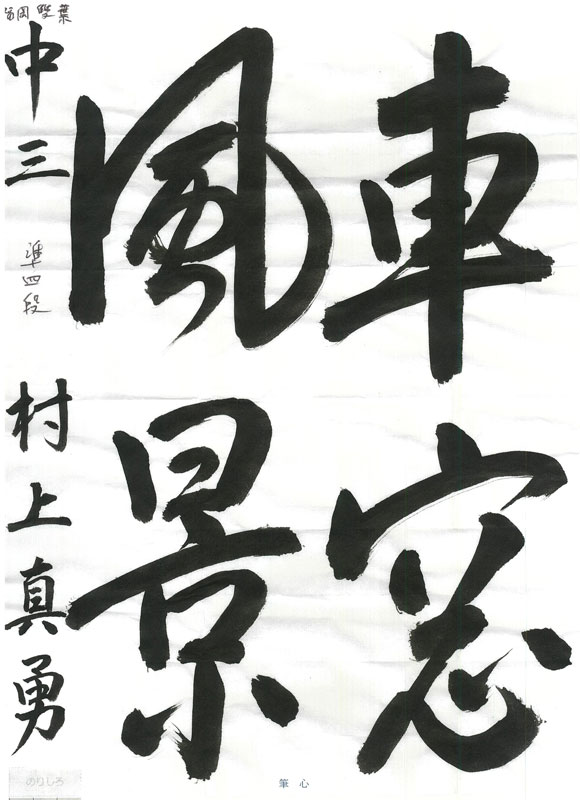 車窓
風景
中三
準四段
村上真勇
双葉
のりしろ
筆心